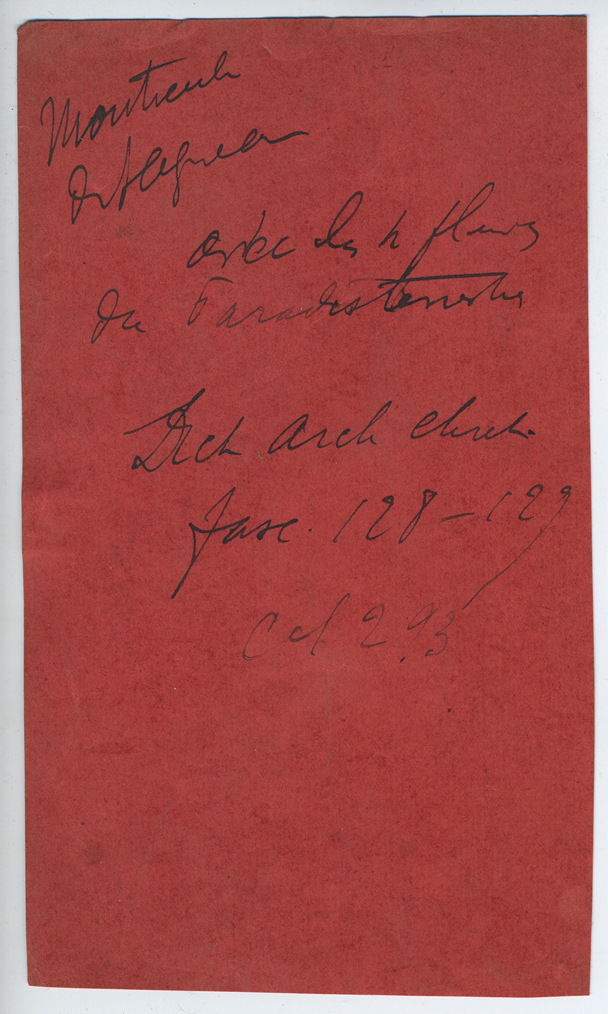 Monticule
de l'Agneau
avec les 4 fleuves
du Paradis terrestre
Dict Arch chret.
fasc. 128-129
Col 293